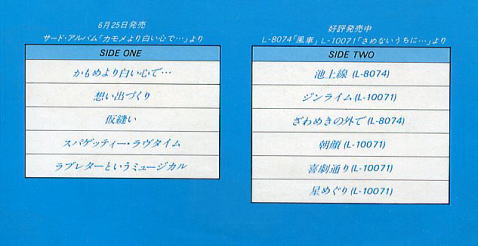 6月25日発売
サード・アルバム「カモメより白い心で…」より
SIDE ONE
かもめより白い心で…
想い出づくり
仮縫い
スパゲッティー・ラヴタイム
ラブレターというミュージカル
好評発売中
L-8074「風車」L-10071「さめないうちに…」より
SIDE TWO
池上線(L-8074)
ジンライム(L-10071)
ざわめきの外で(L-8074)
朝顔(L-10071)
喜劇通り(L-10071)
星めぐり(L-10071)